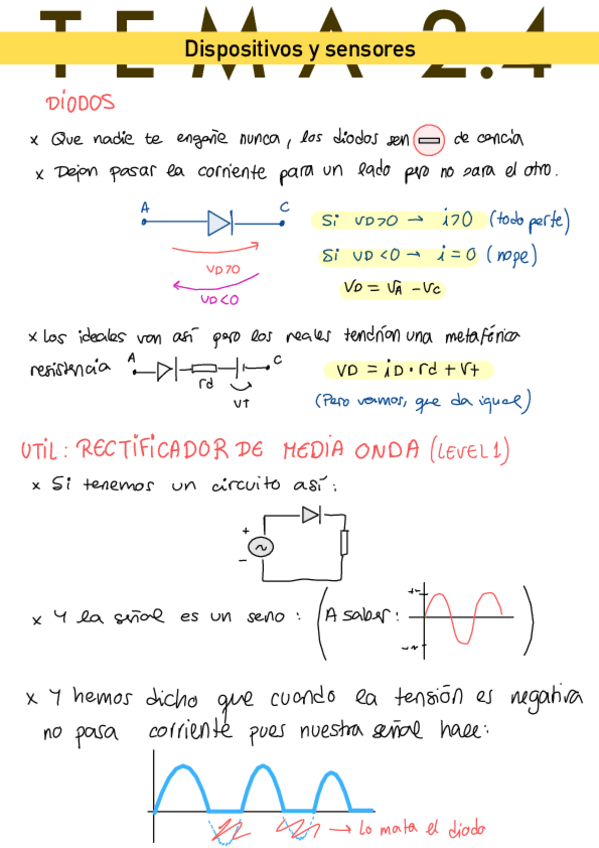 TEMA 2.4
Dispositivos y sensores
DIODOS
x Que nadie te engañe nunca, los diodos son de ciencia
x Dejan pasar la corriente para un lado pero no para el otro.
A C
VD>0
VD<0
Si VD>0 → i>0 (todo perfe)
Si VD<0 → i=0 (nope)
VD = VA - VC
x Los ideales van así pero los reales tendrían una metafórica
resistencia A C
rd
VT
VD = iD · rd + VT
(Pero vamos, que da igual)
UTIL: RECTIFICADOR DE MEDIA ONDA (LEVEL 1)
x Si tenemos un circuito así:
+
~
-
x Y la señal es un seno: (A saber: )
x Y hemos dicho que cuando la tensión es negativa
no pasa corriente pues nuestra señal hace:
→ Lo mata el diodo